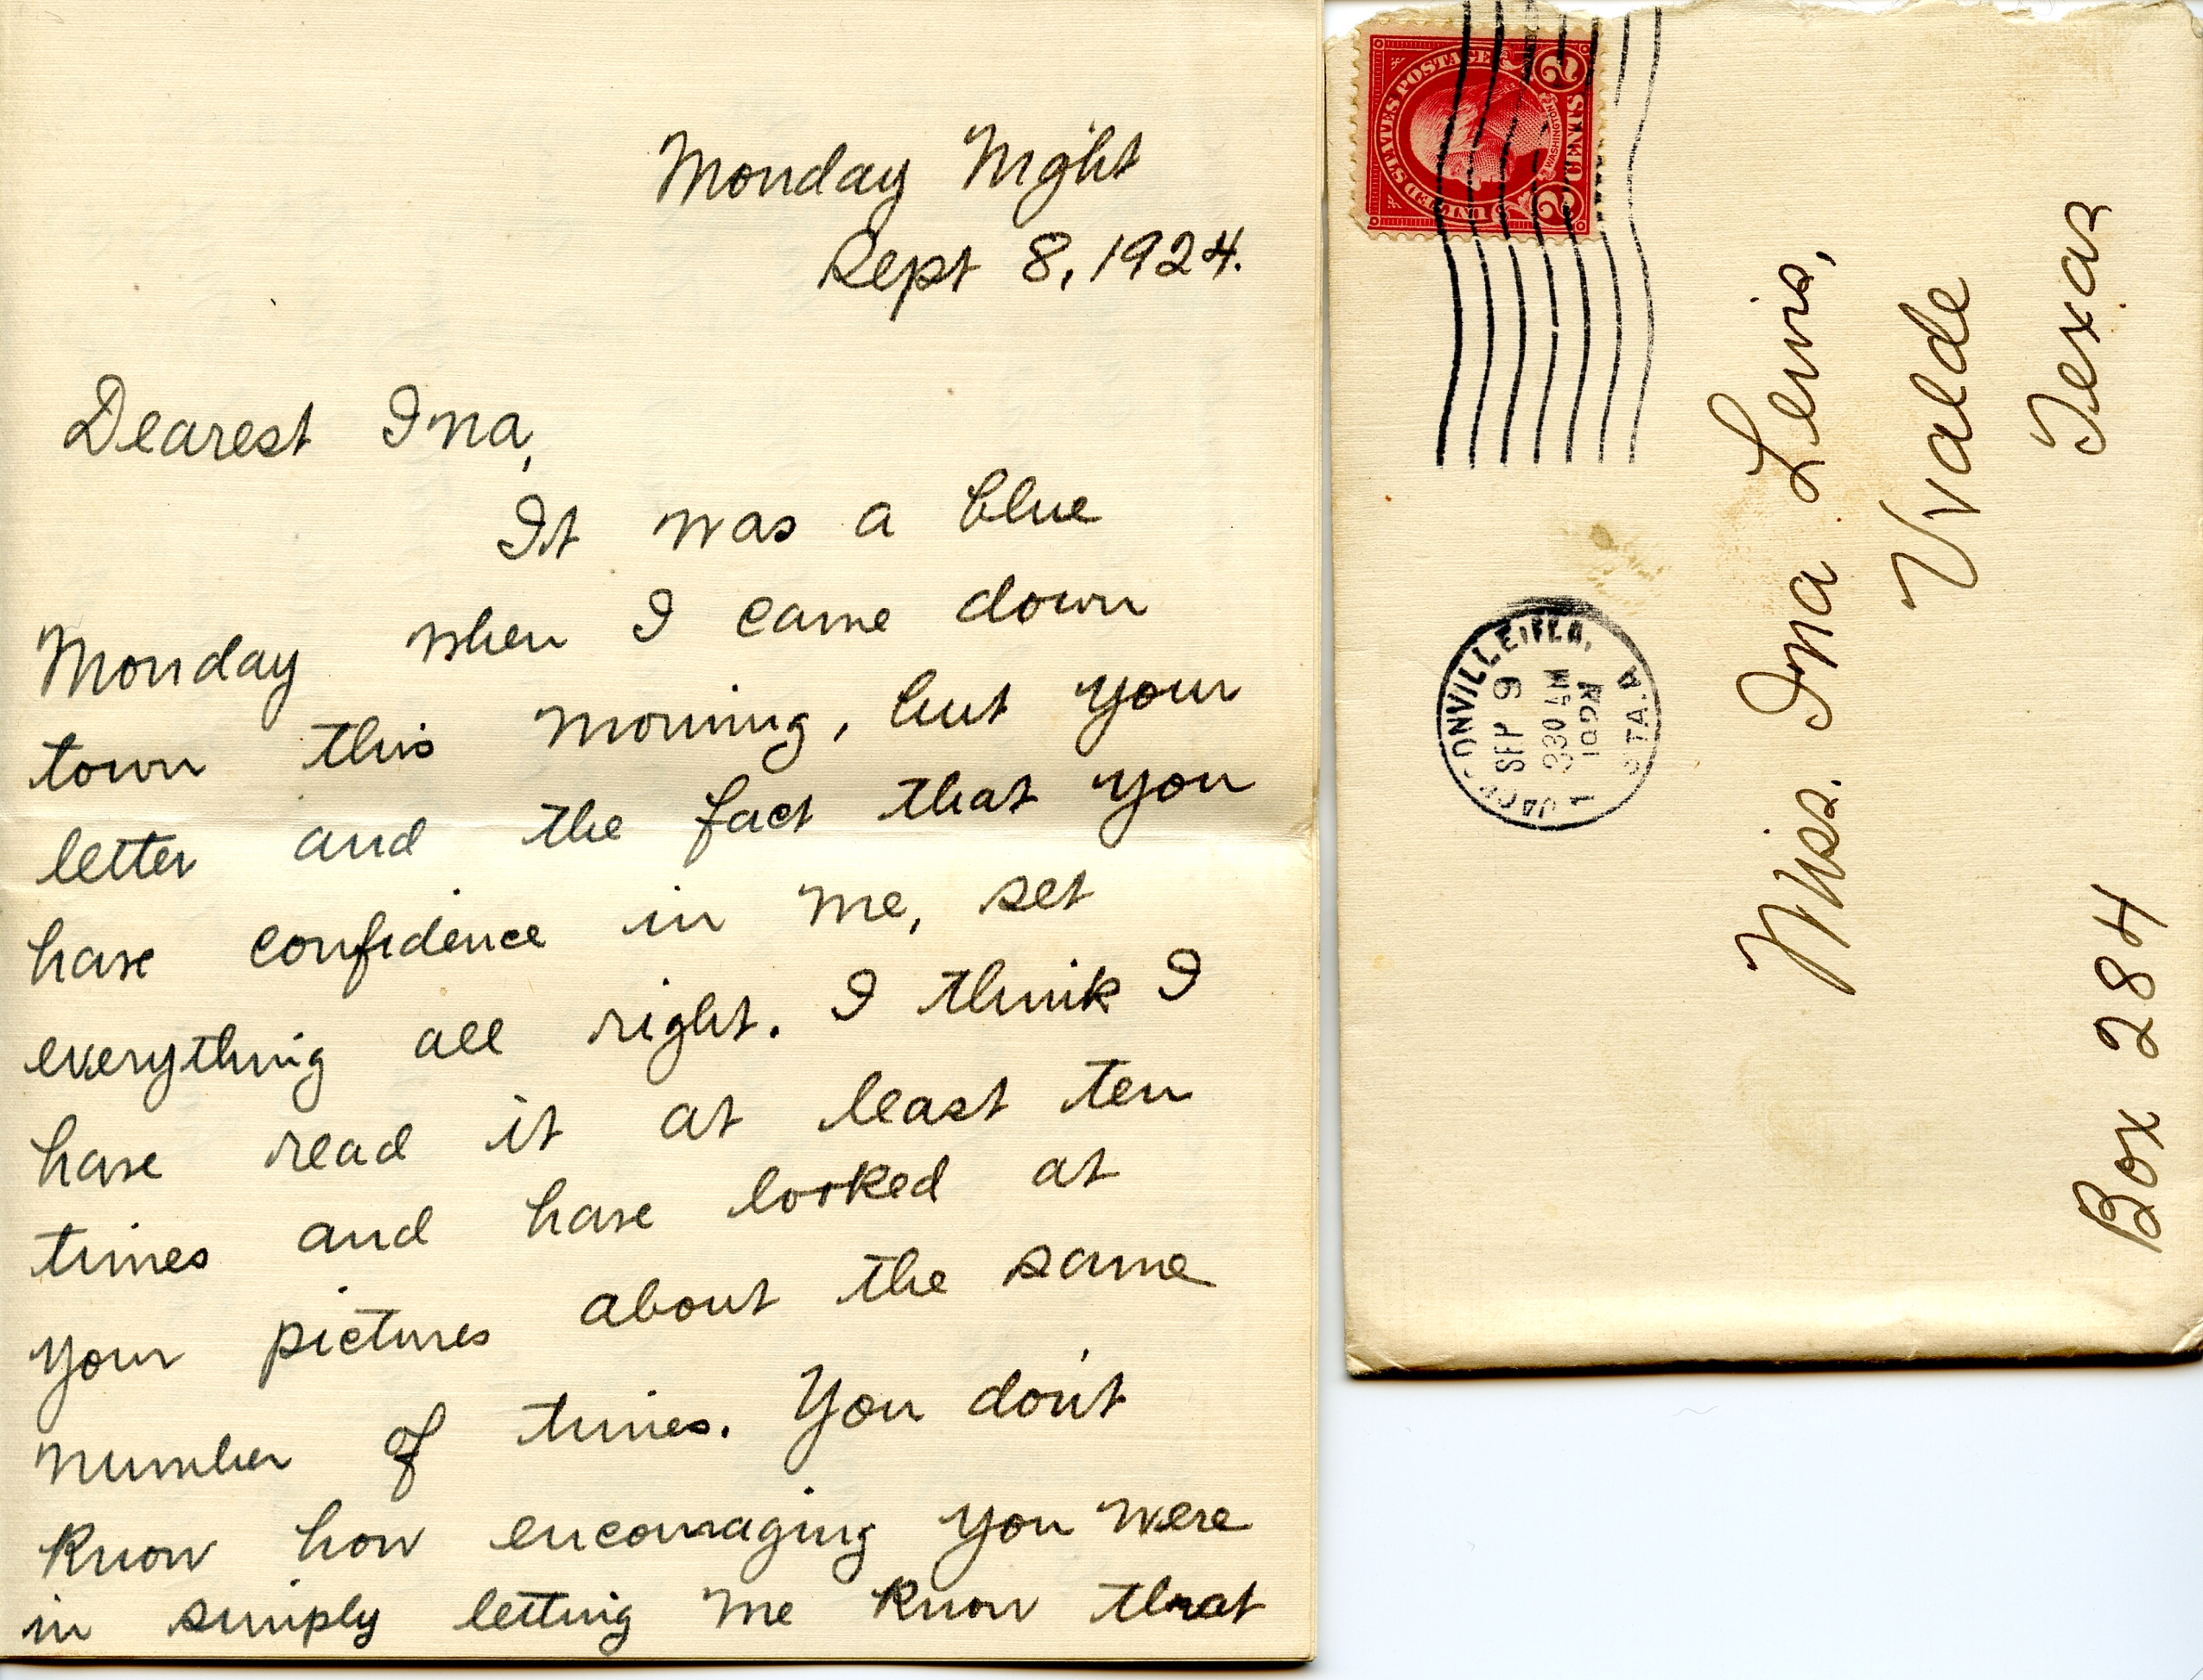 Monday Night
Sept 8, 1924.
Dearest Ina,
It was a blue
Monday when I came down
town this morning, but your
letter and the fact that you
have confidence in me, set
everything all right. I think I
have read it at least ten
times and have looked at
your pictures about the same
number of times. You don't
know how encouraging you were
in simply letting me know that
UNITED STATES POSTAGE
WASHINGTON
2 CENTS 2
JACKSONVILLE, FLA.
SEP 9
330 AM
1924
STA. A
Miss. Ina Lewis,
Uvalde
Texas
Box 284